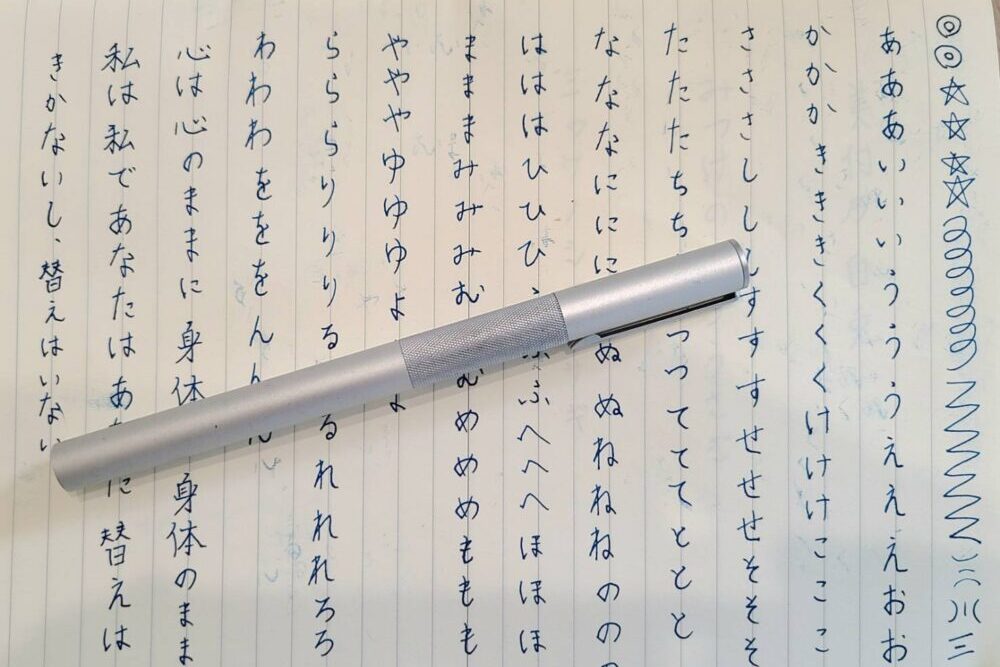 ああああいいいうううえええおお
かかかきききくくくけけけこここ
さささししすすすせせせそそそ
たたたちちつつてててととと
なななにににぬぬねねねのの
はははひひひふふへへへほほほ
まままみみみむむめめめももも
やややゆゆゆよよ
らららりりりるるれれれろろ
わわわをををんん
心は心のままに身体身体のまま
私は私であなたはあなたに替えは
きかないし、替えはいない